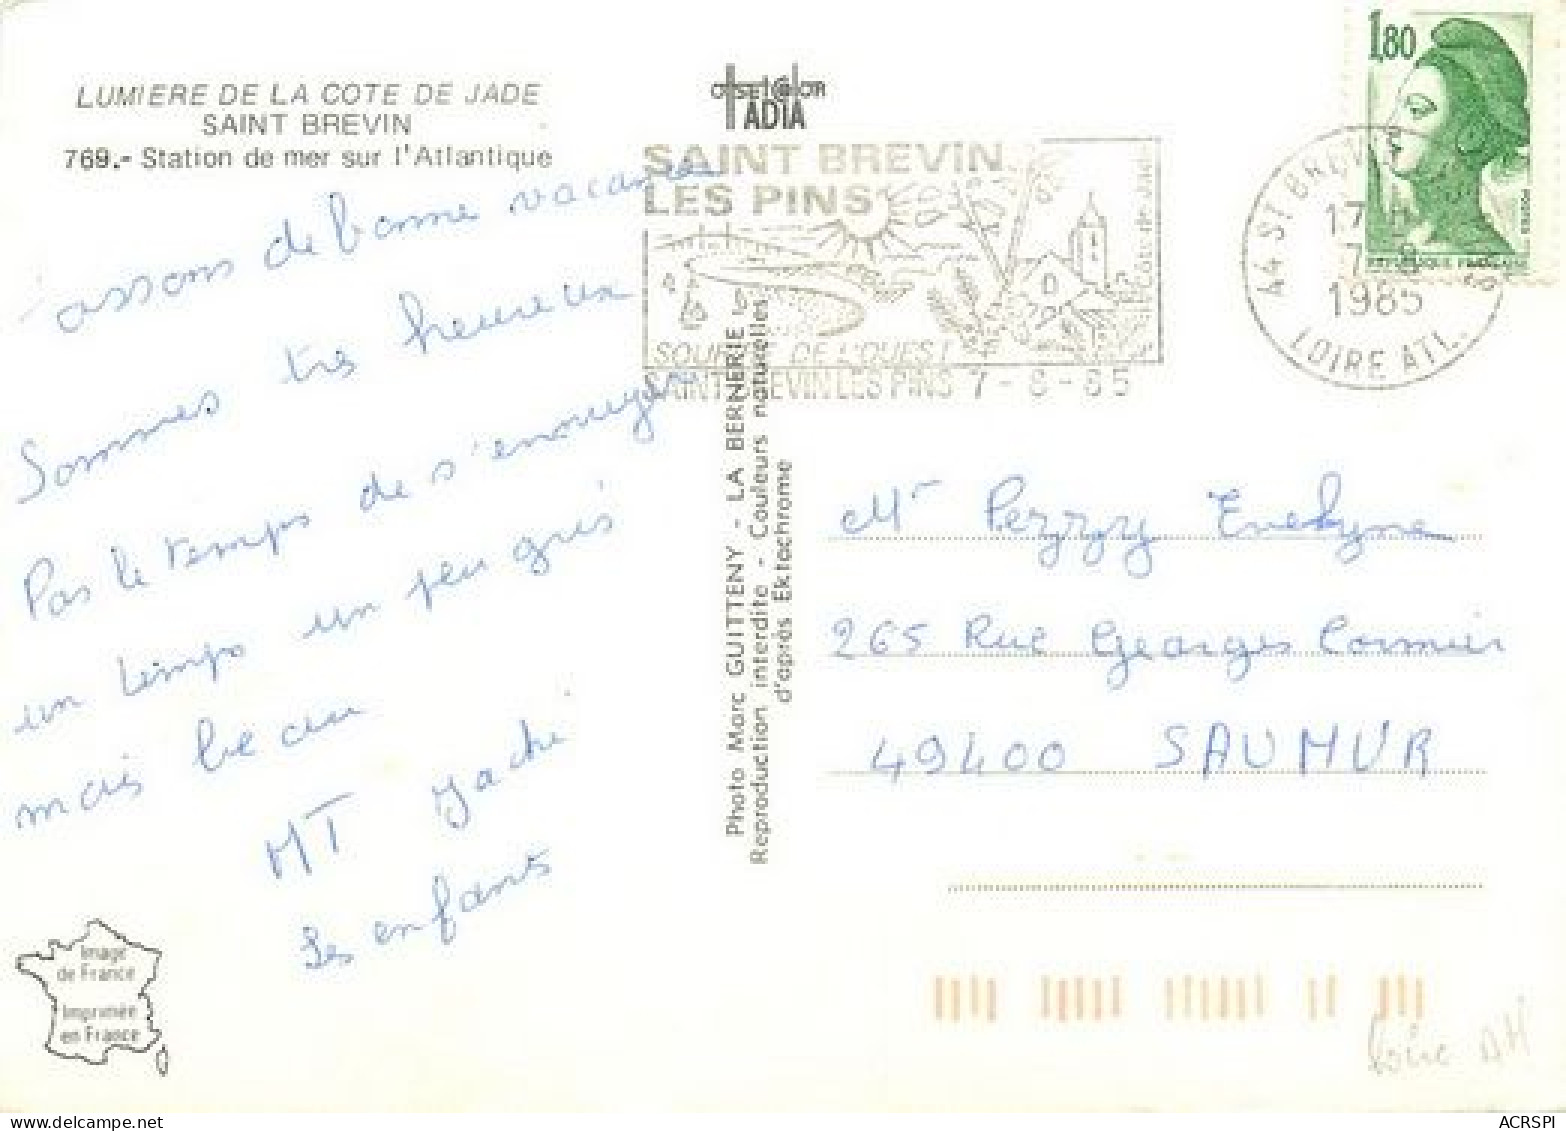 LUMIERE DE LA COTE DE JADE
SAINT BREVIN
769.- Station de mer sur l'Atlantique
assons de bonne vacances
Sommes très heureux
Pas le temps de s'ennuyer
un temps un peu gris
mais beau
MT Jacki
Les enfants
Image
de France
Imprimée
en France
ADIA
SAINT BREVIN
LES PINS
Côte de Jade
DE L'OUEST
SAINT BREVIN LES PINS 7-8-85
Photo Marc GUITTENY - LA BERNERIE
Reproduction interdite - Couleurs naturelles
d'après Ektachrome
1,80
44 ST BREVIN
17
7-8
1985
LOIRE ATL.
Mr Pezzy Evelyne
265 Rue Georges Cormier
49400 SAUMUR
Loire Atl
ACRSPI